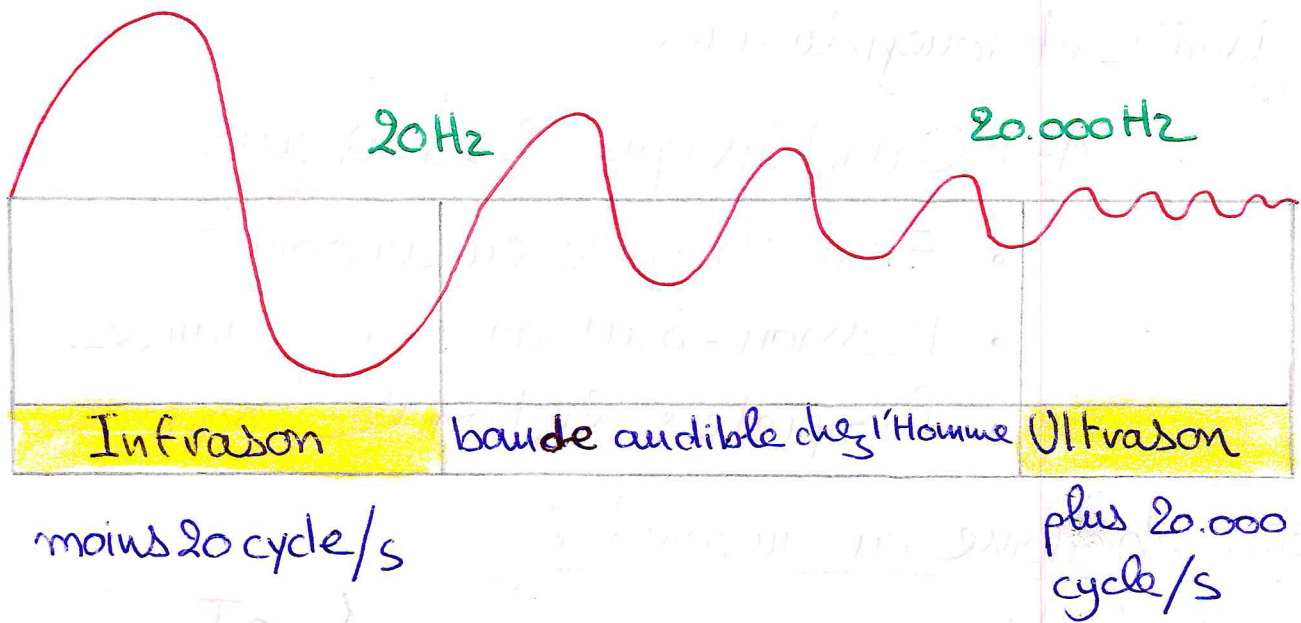 20Hz
20.000Hz
Infrason
bande audible chez l'Homme
Ultrason
moins 20 cycle/s
plus 20.000
cycle/s